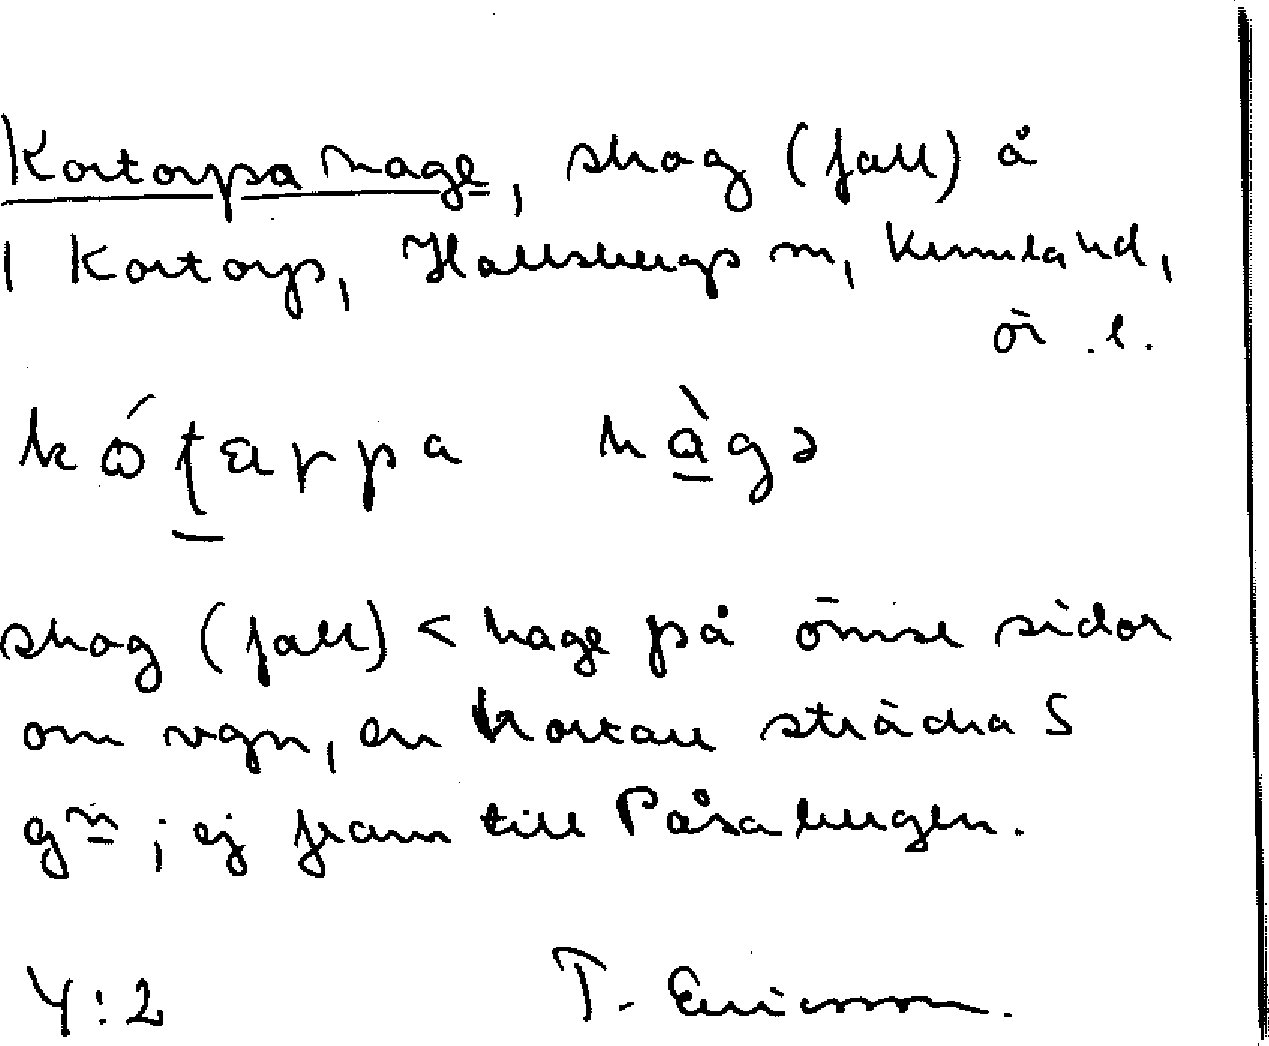 Kortorpa hage, skog (fall) å
1 Kortorp, Hallsbergs sn, Kumla hd,
Ör. l.
skog (fall) < hage på ömse sidor
om vgn, en kortare sträcka S
gn; ej fram till Påsabergen.
4:2 T. Ericsson.